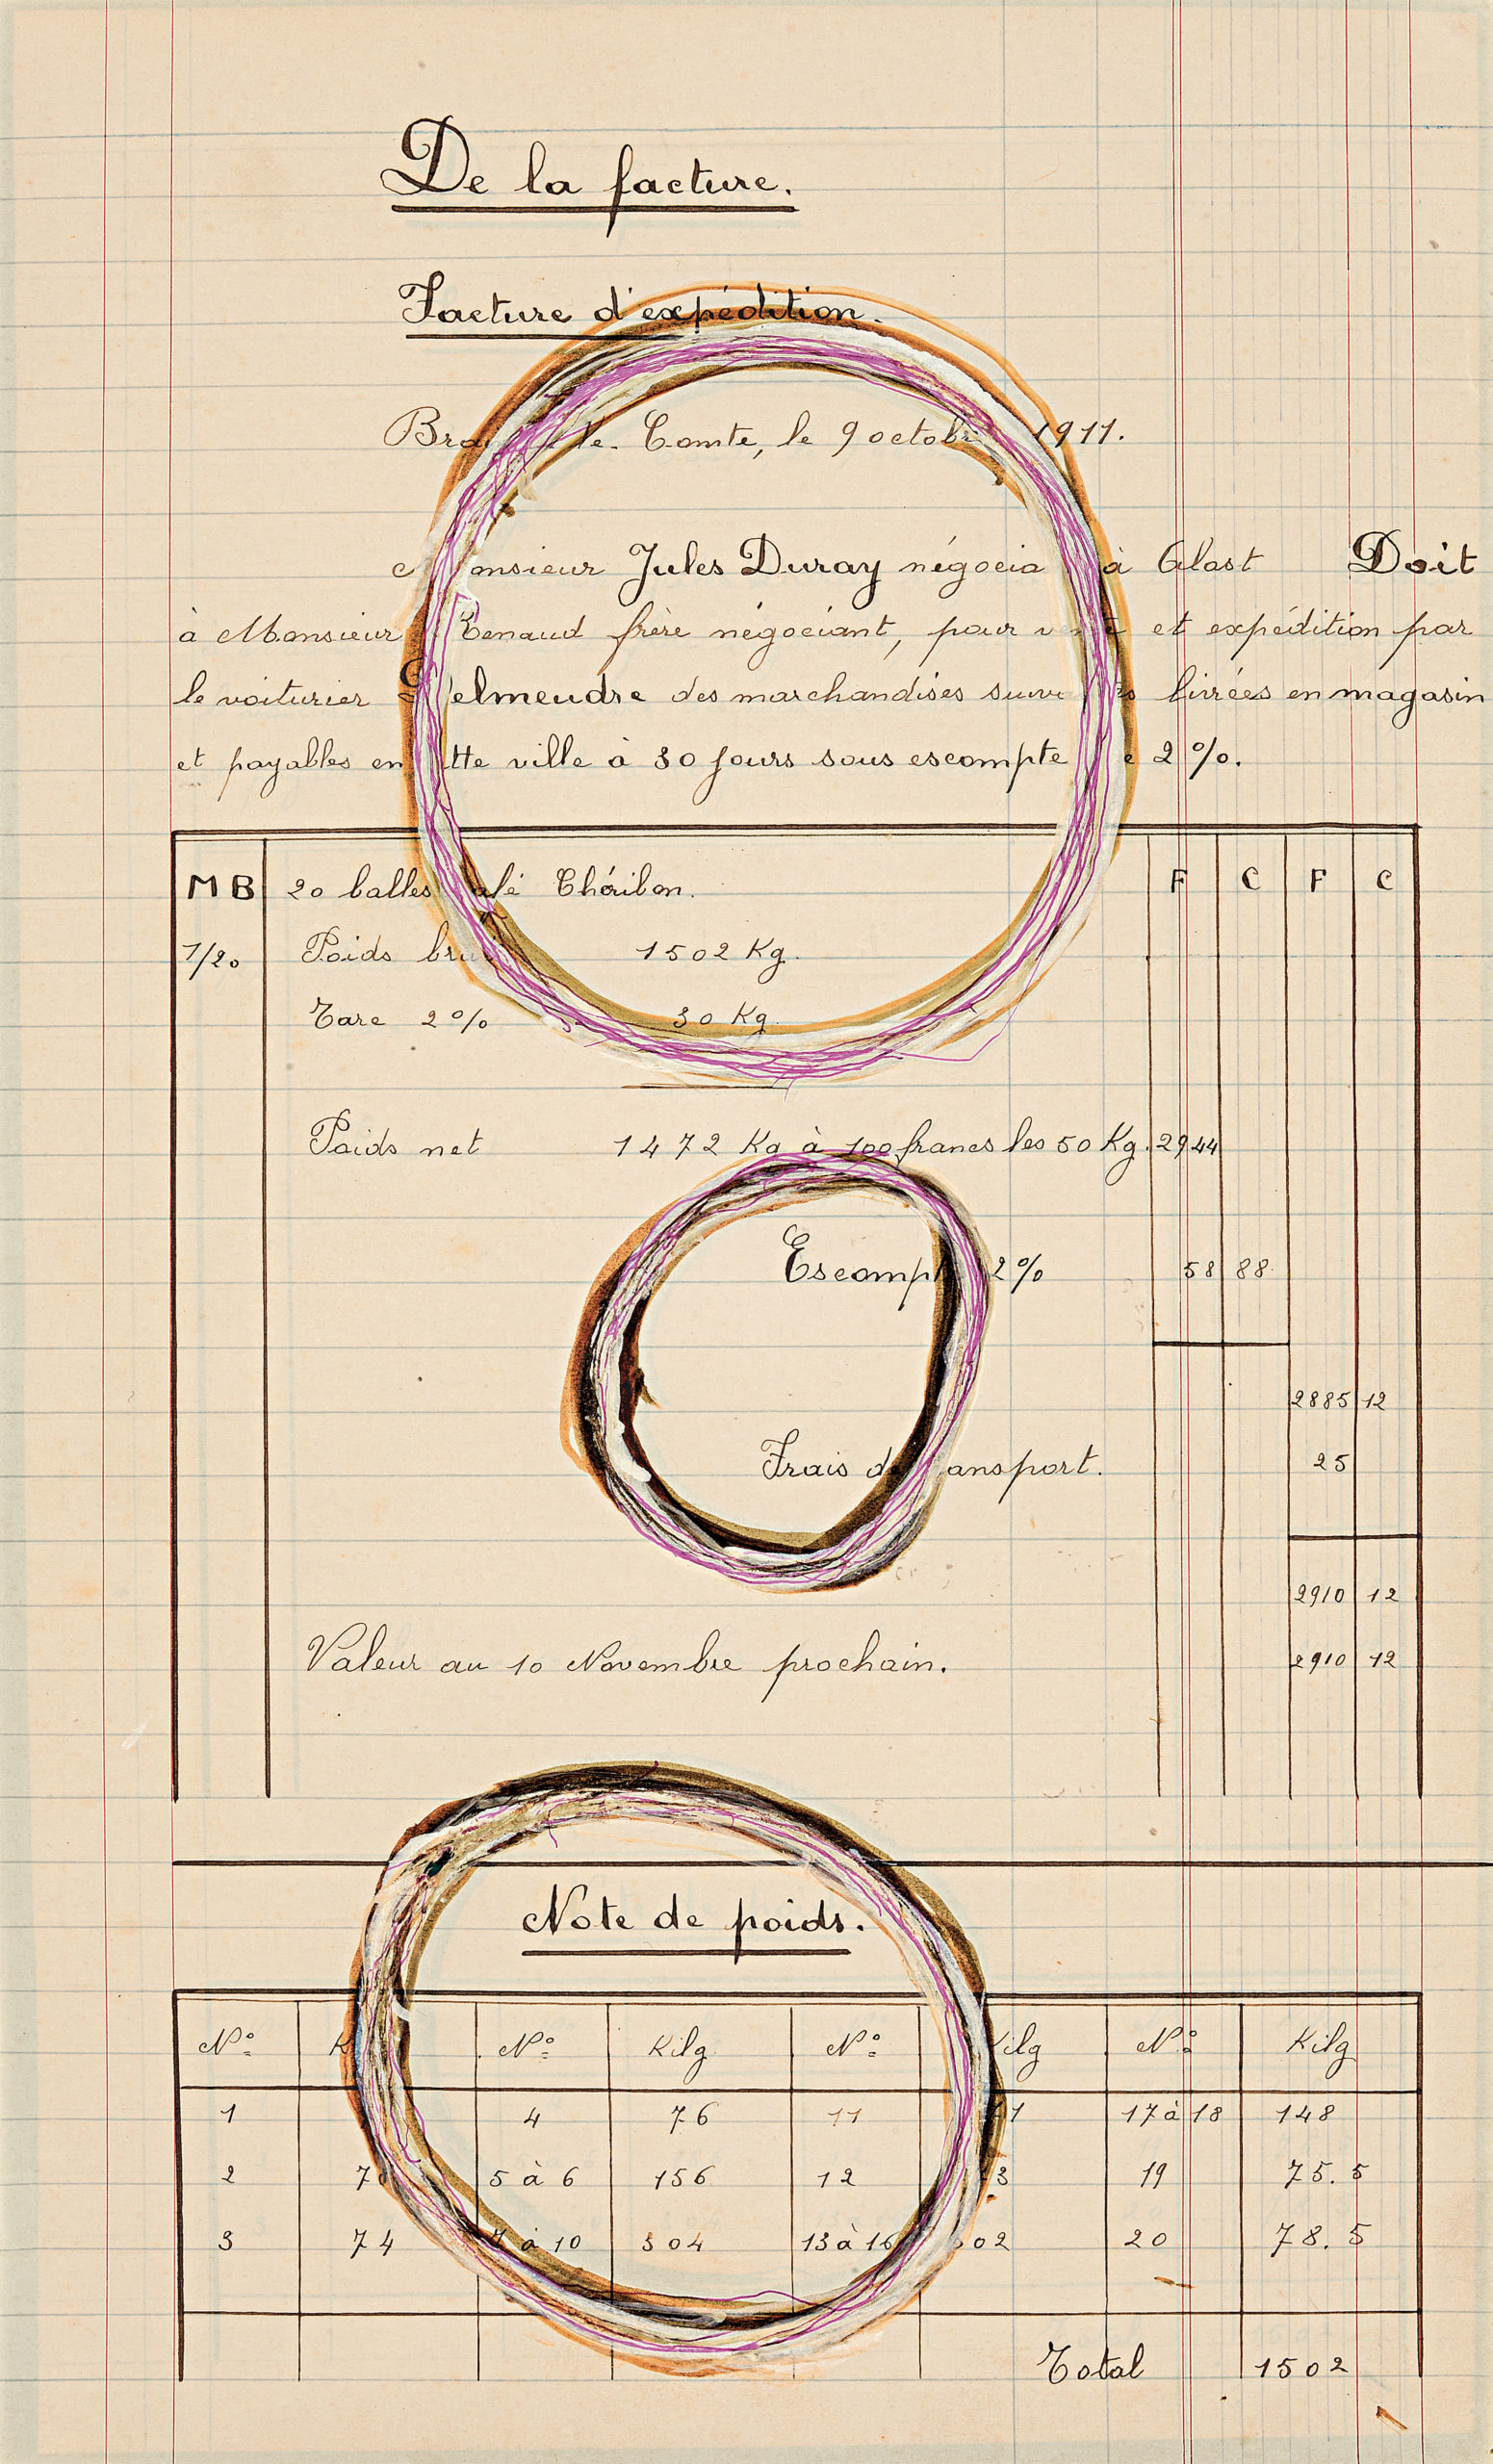 De la facture.
Facture d'expédition.
le Comte, le 9 octobre 1911.
Monsieur Jules Duray à Alost Doit
à Monsieur Renaud frère négociant, pour vente et expédition par
le voiturier Delmeudre des marchandises livrées en magasin
et payables en ville à 30 jours sous escompte 2 %.
MB 20 balles Café Chéribon. F C F C
1/20 Poids brut 1502 Kg.
Tare 2% 30 Kg.
Poids net 1472 Kg à 100 francs les 50 Kg. 2944
Escompte 2% 58 88
2885 12
Frais de transport. 25
2910 12
Valeur au 10 Novembre prochain. 2910 12
Note de poids.
Nº Nº Kilg Nº Kilg Nº Kilg
1 4 76 11 17 à 18 148
2 5 à 6 156 12 19 75.5
3 74 7 à 10 304 13 à 16 302 20 78.5
Total 1502